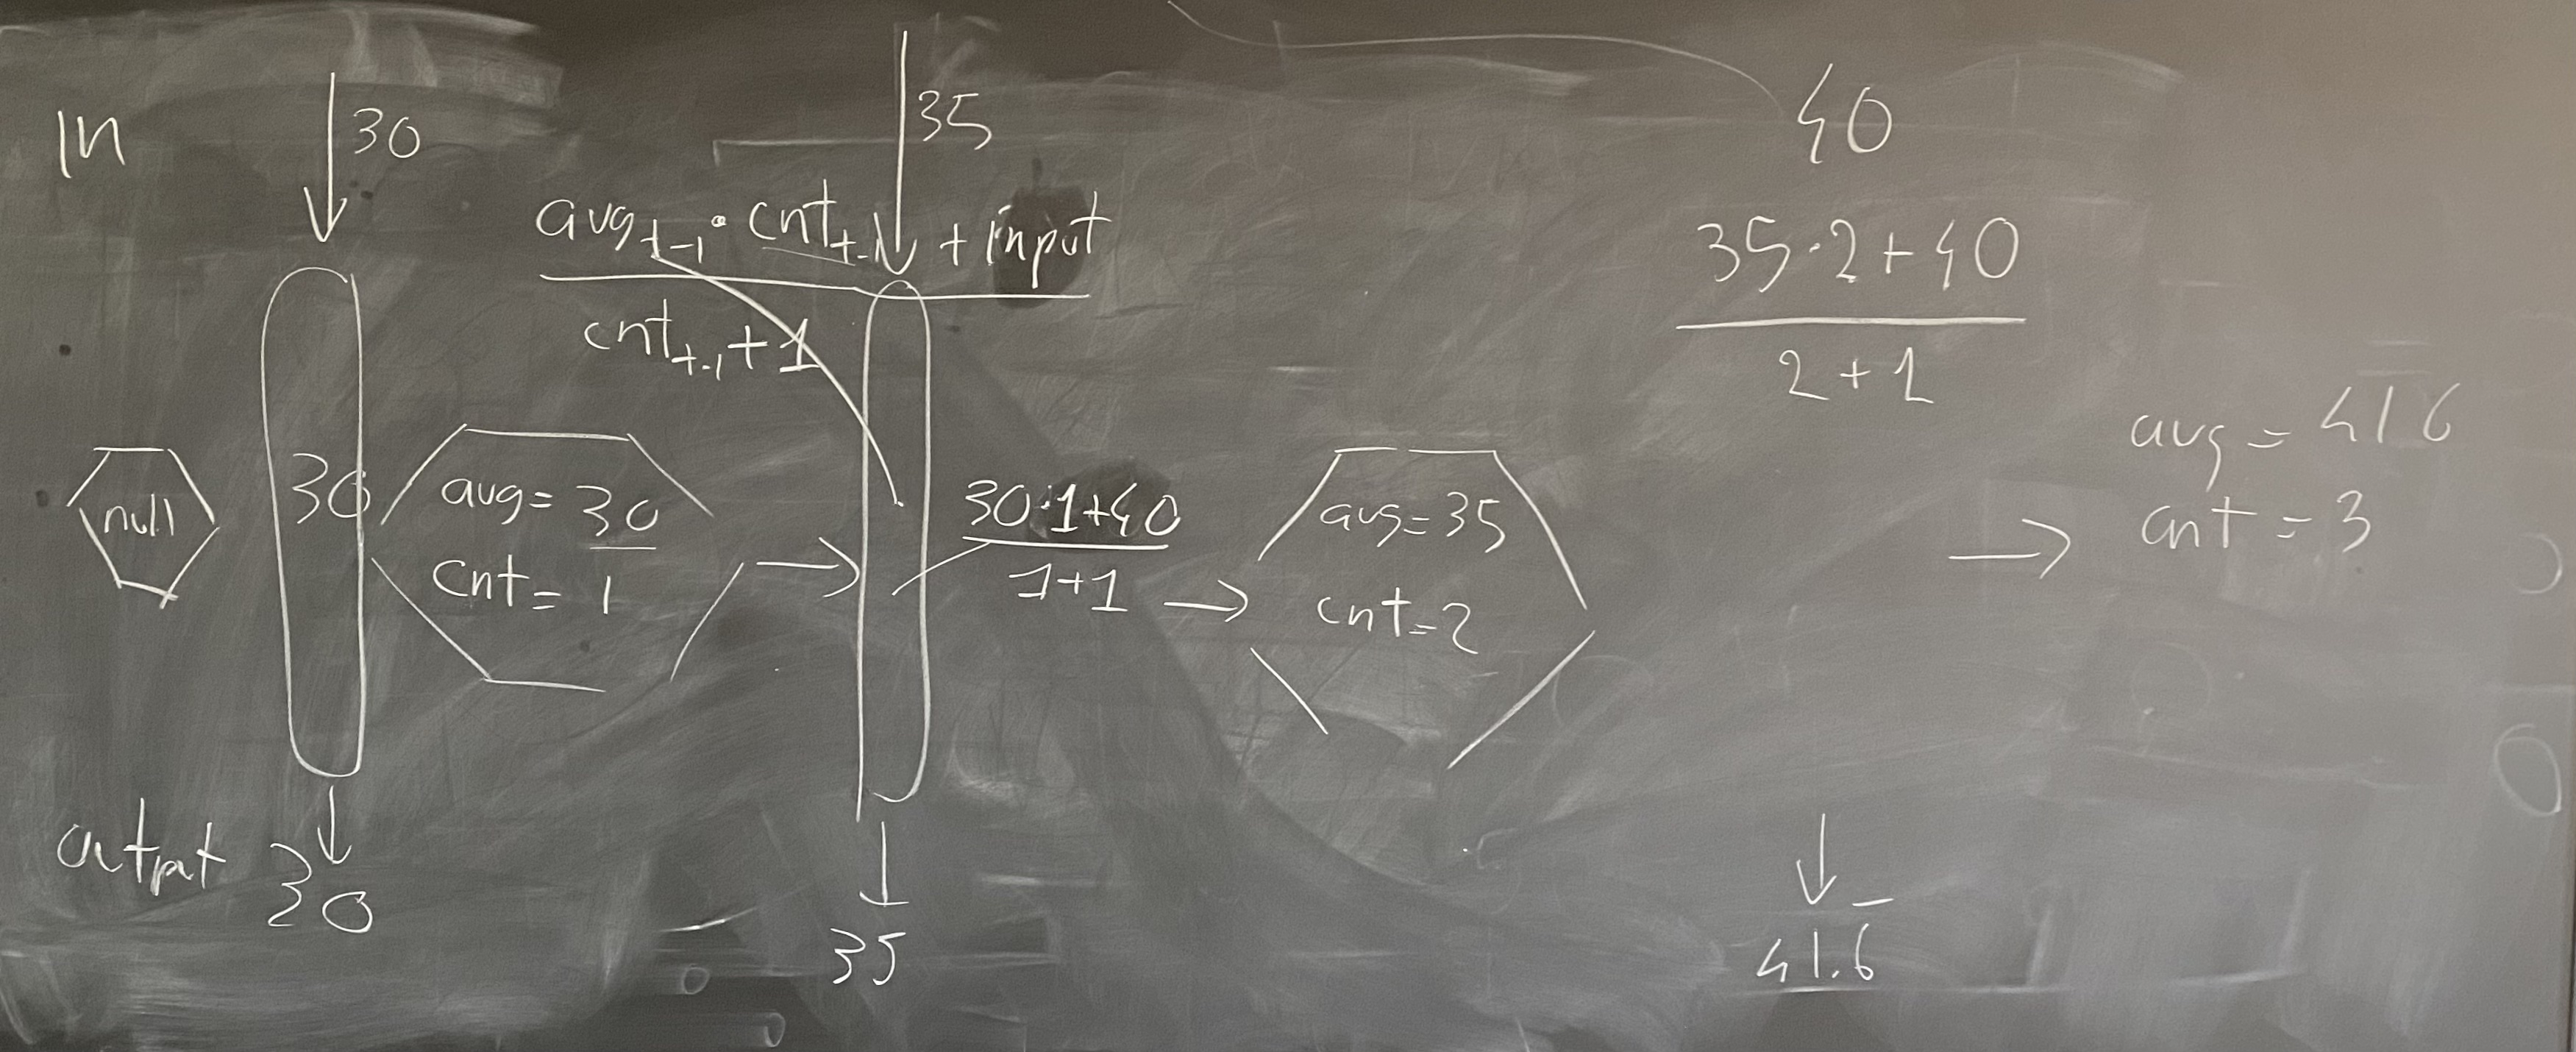 In
30
35
40
avg_{t-1} · cnt_{t-1} + input
cnt_{t-1} + 1
35·2+40
2+1
null
30
avg = 30
cnt = 1
30·1+40
1+1
avg=35
cnt=2
avg = 41 6
cnt = 3
output
30
35
41.6̅